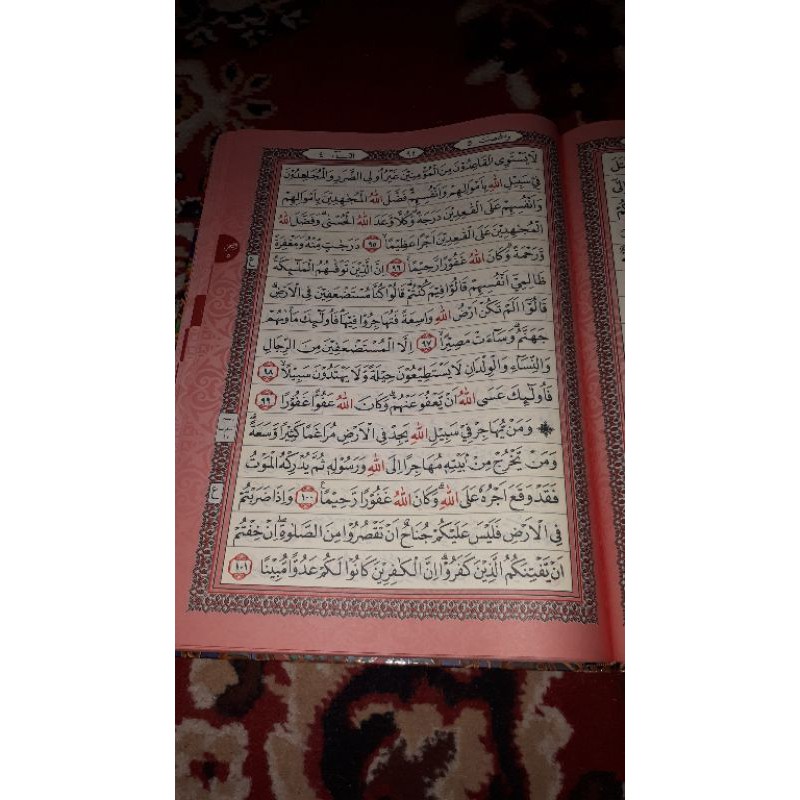 والمحصنت ٥
٩٤
النساء ٤
لَا يَسْتَوِى الْقَاعِدُوْنَ مِنَ الْمُؤْمِنِيْنَ غَيْرُ اُولِى الضَّرَرِ وَالْمُجَاهِدُوْنَ
فِيْ سَبِيْلِ اللّٰهِ بِاَمْوَالِهِمْ وَاَنْفُسِهِمْۗ فَضَّلَ اللّٰهُ الْمُجٰهِدِيْنَ بِاَمْوَالِهِمْ
وَاَنْفُسِهِمْ عَلَى الْقٰعِدِيْنَ دَرَجَةً ۗ وَكُلًّا وَّعَدَ اللّٰهُ الْحُسْنٰىۗ وَفَضَّلَ اللّٰهُ
الْمُجٰهِدِيْنَ عَلَى الْقٰعِدِيْنَ اَجْرًا عَظِيْمًاۙ ٩٥ دَرَجٰتٍ مِّنْهُ وَمَغْفِرَةً
وَّرَحْمَةً ۗ وَكَانَ اللّٰهُ غَفُوْرًا رَّحِيْمًا ٩٦ اِنَّ الَّذِيْنَ تَوَفّٰىهُمُ الْمَلٰۤىِٕكَةُ
ظَالِمِيْٓ اَنْفُسِهِمْ قَالُوْا فِيْمَ كُنْتُمْ ۗ قَالُوْا كُنَّا مُسْتَضْعَفِيْنَ فِى الْاَرْضِۗ
قَالُوْٓا اَلَمْ تَكُنْ اَرْضُ اللّٰهِ وَاسِعَةً فَتُهَاجِرُوْا فِيْهَا ۗ فَاُولٰۤىِٕكَ مَأْوٰىهُمْ
جَهَنَّمُ ۗ وَسَاۤءَتْ مَصِيْرًاۙ ٩٧ اِلَّا الْمُسْتَضْعَفِيْنَ مِنَ الرِّجَالِ
وَالنِّسَاۤءِ وَالْوِلْدَانِ لَا يَسْتَطِيْعُوْنَ حِيْلَةً وَّلَا يَهْتَدُوْنَ سَبِيْلًاۙ ٩٨
فَاُولٰۤىِٕكَ عَسَى اللّٰهُ اَنْ يَّعْفُوَ عَنْهُمْ ۗ وَكَانَ اللّٰهُ عَفُوًّا غَفُوْرًا ٩٩
۞ وَمَنْ يُّهَاجِرْ فِيْ سَبِيْلِ اللّٰهِ يَجِدْ فِى الْاَرْضِ مُرَاغَمًا كَثِيْرًا وَّسَعَةً ۗ
وَمَنْ يَّخْرُجْ مِنْۢ بَيْتِهٖ مُهَاجِرًا اِلَى اللّٰهِ وَرَسُوْلِهٖ ثُمَّ يُدْرِكْهُ الْمَوْتُ
فَقَدْ وَقَعَ اَجْرُهٗ عَلَى اللّٰهِ ۗ وَكَانَ اللّٰهُ غَفُوْرًا رَّحِيْمًا ١٠٠ وَاِذَا ضَرَبْتُمْ
فِى الْاَرْضِ فَلَيْسَ عَلَيْكُمْ جُنَاحٌ اَنْ تَقْصُرُوْا مِنَ الصَّلٰوةِ ۖ اِنْ خِفْتُمْ
اَنْ يَّفْتِنَكُمُ الَّذِيْنَ كَفَرُوْاۗ اِنَّ الْكٰفِرِيْنَ كَانُوْا لَكُمْ عَدُوًّا مُّبِيْنًا ١٠١